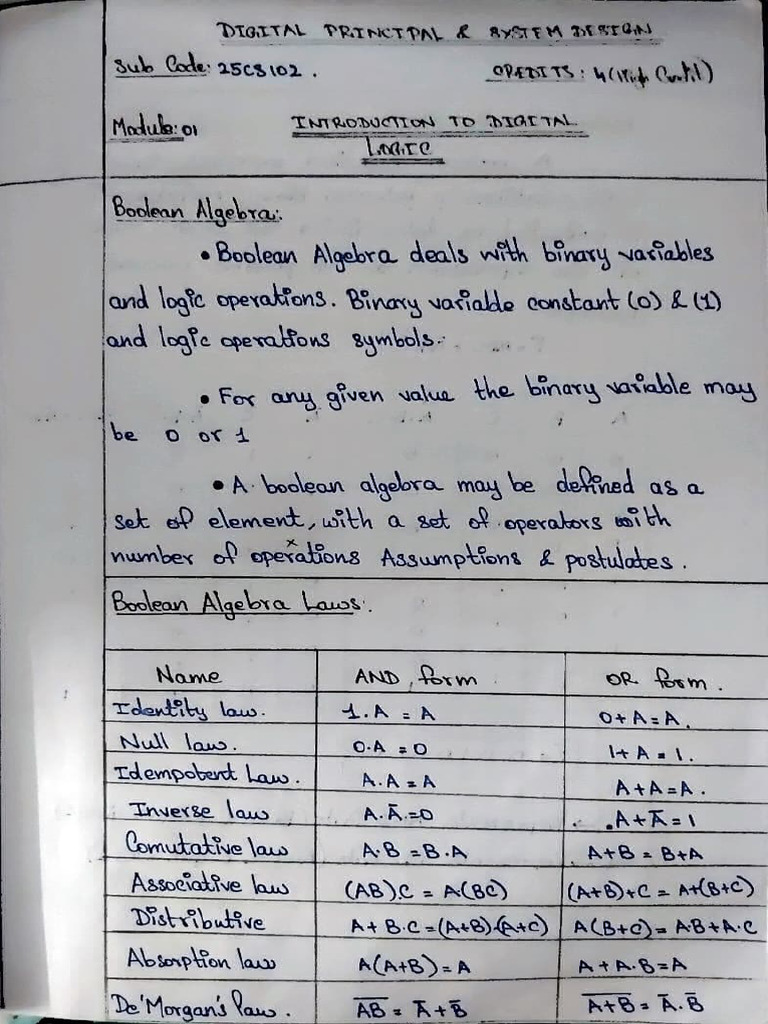 DIGITAL PRINCIPAL & SYSTEM DESIGN
Sub Code: 25CS102.
CREDITS: 4
Module: 01
INTRODUCTION TO DIGITAL
LOGIC
Boolean Algebra:
• Boolean Algebra deals with binary variables
and logic operations. Binary variable constant (0) & (1)
and logic operations symbols.
• For any given value the binary variable may
be 0 or 1
• A boolean algebra may be defined as a
set of element, with a set of operators with
number of operations Assumptions & postulates.
Boolean Algebra Laws:
Name AND form OR form.
Identity law. 1.A = A 0+A=A.
Null law. 0.A = 0 1+A = 1.
Idempotent Law. A.A = A A+A=A.
Inverse law A.Ā=0 A+Ā=1
Comutative law A.B = B.A A+B = B+A
Associative law (AB).C = A.(BC) (A+B)+C = A+(B+C)
Distributive A+B.C=(A+B).(A+C) A(B+C)=A.B+A.C
Absorption law A(A+B)=A A+A.B=A
De'Morgan's law. A̅B̅ = Ā+B̄ A̅+̅B̅ = Ā.B̄